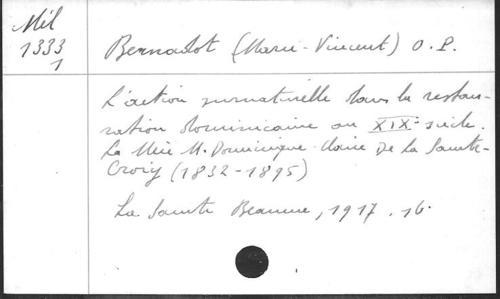 Mél
1333
1
Bernadot (Marie-Vincent) O.P.
L'action surnaturelle dans la restau-
ration dominicaine au XIX-siècle.
La Mère M. Dominique-Claire De La Sainte-
Croix (1832-1895)
La Sainte Beaume, 1917. 16.